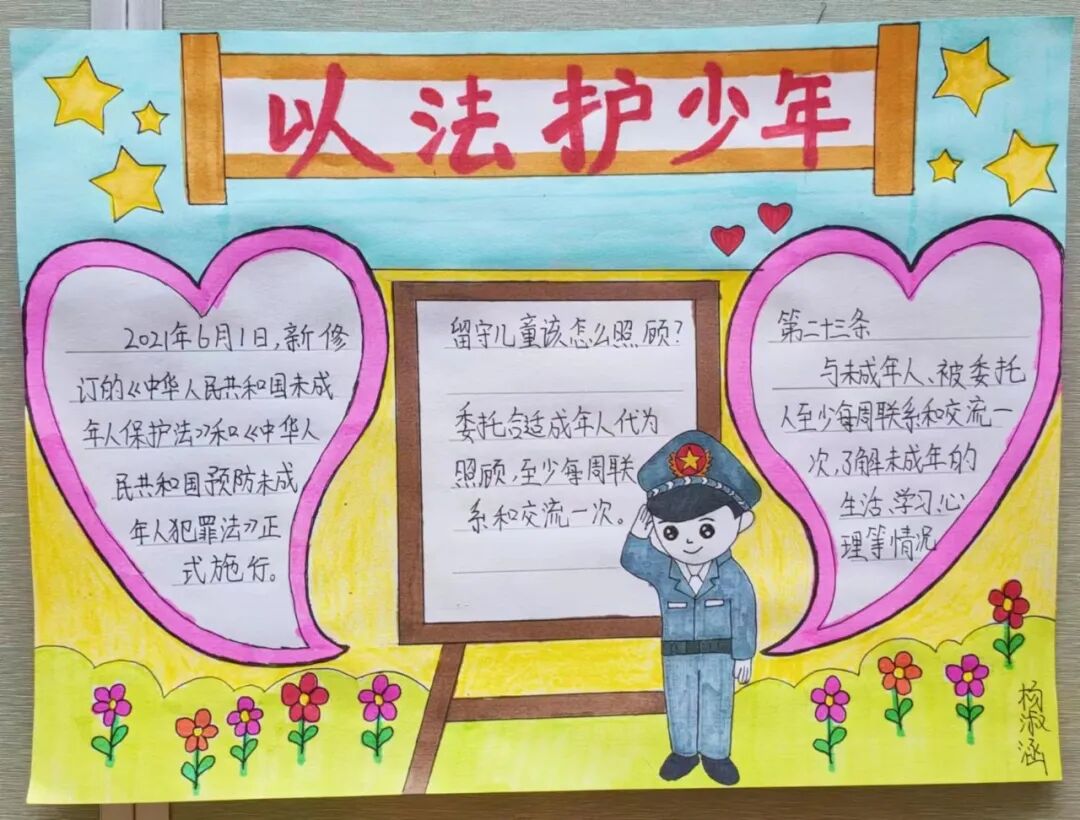 以法护少年
2021年6月1日,新修
订的《中华人民共和国未成
年人保护法》和《中华人
民共和国预防未成
年人犯罪法》正
式施行。
留守儿童该怎么照顾?
委托合适成年人代为
照顾,至少每周联
系和交流一次。
第二十三条
与未成年人、被委托
人至少每周联系和交流一
次,了解未成年的
生活、学习、心
理等情况
杨淑涵